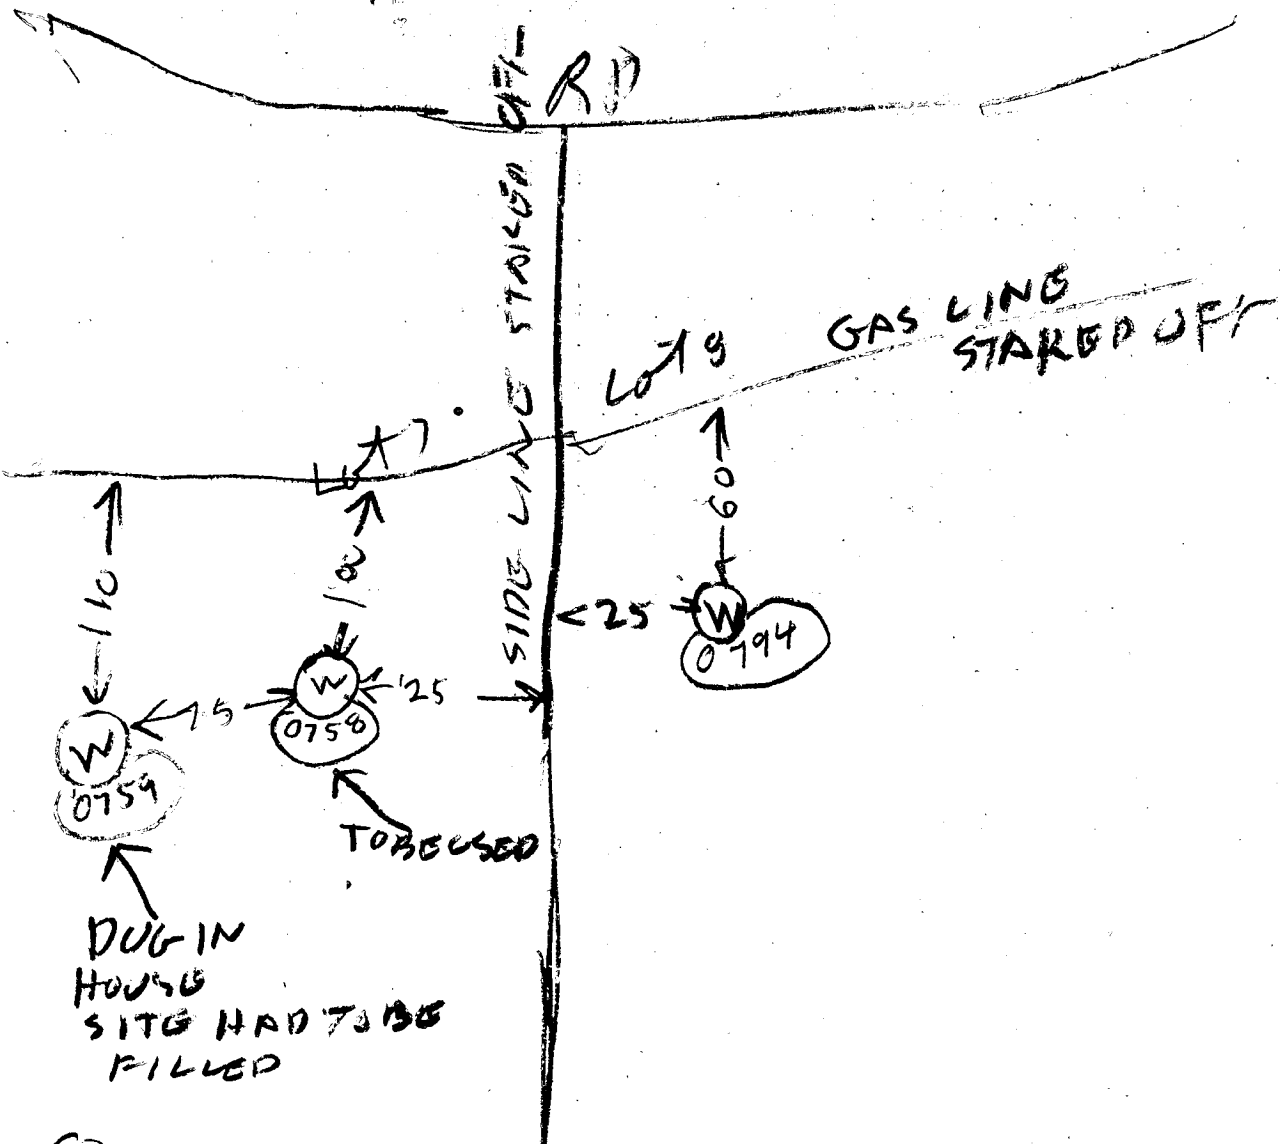 RD
SIDE LINE STAKED OFF
GAS LINE
STAKED OFF
LOT 8
LOT 7
60
110
100
25
W
0794
W
'25
75
0758
W
0759
TO BE USED
DUG IN
HOUSE
SITE HAD TO BE
FILLED